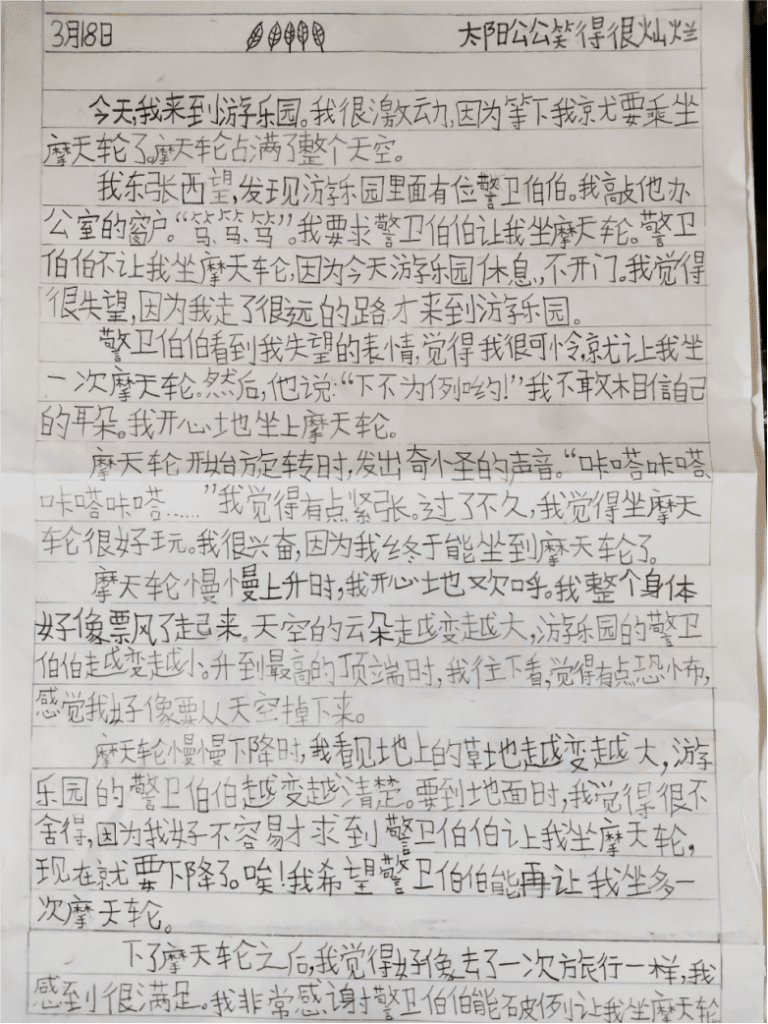 3月18日 太阳公公笑得很灿烂
今天,我来到游乐园。我很激动,因为等下我就要乘坐
摩天轮了。摩天轮占满了整个天空。
我东张西望,发现游乐园里面有位警卫伯伯。我敲他办
公室的窗户。“笃、笃、笃”。我要求警卫伯伯让我坐摩天轮。警卫
伯伯不让我坐摩天轮,因为今天游乐园休息,不开门。我觉得
很失望,因为我走了很远的路才来到游乐园。
警卫伯伯看到我失望的表情,觉得我很可怜,就让我坐
一次摩天轮。然后,他说:“下不为例哟!”我不敢相信自己
的耳朵。我开心地坐上摩天轮。
摩天轮开始旋转时,发出奇怪的声音。“咔嗒咔嗒、
咔嗒咔嗒……”我觉得有点紧张。过了不久,我觉得坐摩天
轮很好玩。我很兴奋,因为我终于能坐到摩天轮了。
摩天轮慢慢上升时,我开心地欢呼。我整个身体
好像飘了起来。天空的云朵越变越大,游乐园的警卫
伯伯越变越小。升到最高的顶端时,我往下看,觉得有点恐怖,
感觉我好像要从天空掉下来。
摩天轮慢慢下降时,我看见地上的草地越变越大,游
乐园的警卫伯伯越变越清楚。要到地面时,我觉得很不
舍得,因为我好不容易才求到警卫伯伯让我坐摩天轮,
现在就要下降了。唉!我希望警卫伯伯能再让我坐多一
次摩天轮。
下了摩天轮之后,我觉得好像去了一次旅行一样,我
感到很满足。我非常感谢警卫伯伯能破例让我坐摩天轮